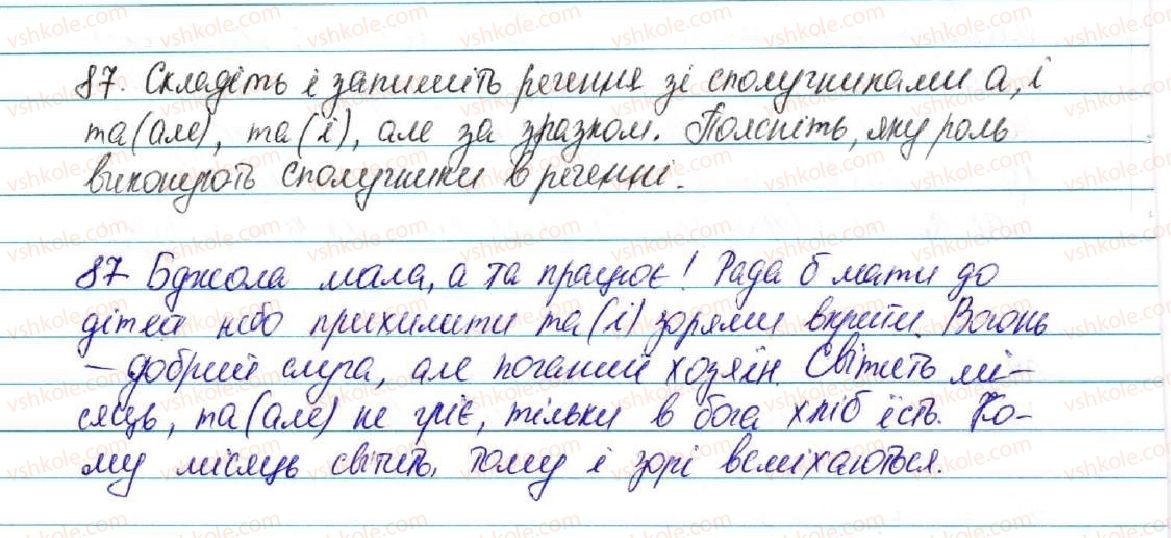 87. Складіть і запишіть речення зі сполучниками а, і
та (але), та (і), але за зразком. Поясніть, яку роль
виконують сполучники в реченні.
87 Бджола мала, а та працює! Рада б мати до
дітей небо прихилити та (і) зорями вкрити. Вогонь
– добрий слуга, але поганий хозяїн. Світить мі-
сяць, та (але) не гріє, тільки в бога хліб їсть. Ко-
му місяць світить, тому і зорі всміхаються.